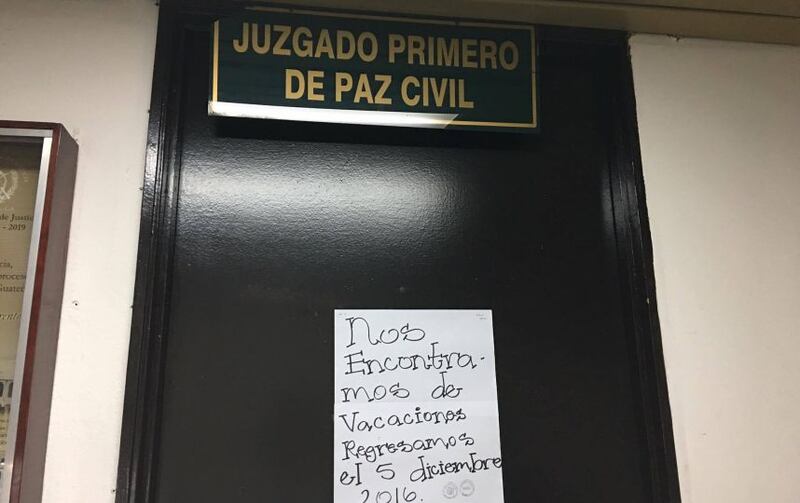 JUZGADO PRIMERO
DE PAZ CIVIL
de Justic
- 2019
cia,
proceso
Guatem
Nos
Encontra-
mos de
Vacaciones
Regresamos
el 5 diciembre
2016.